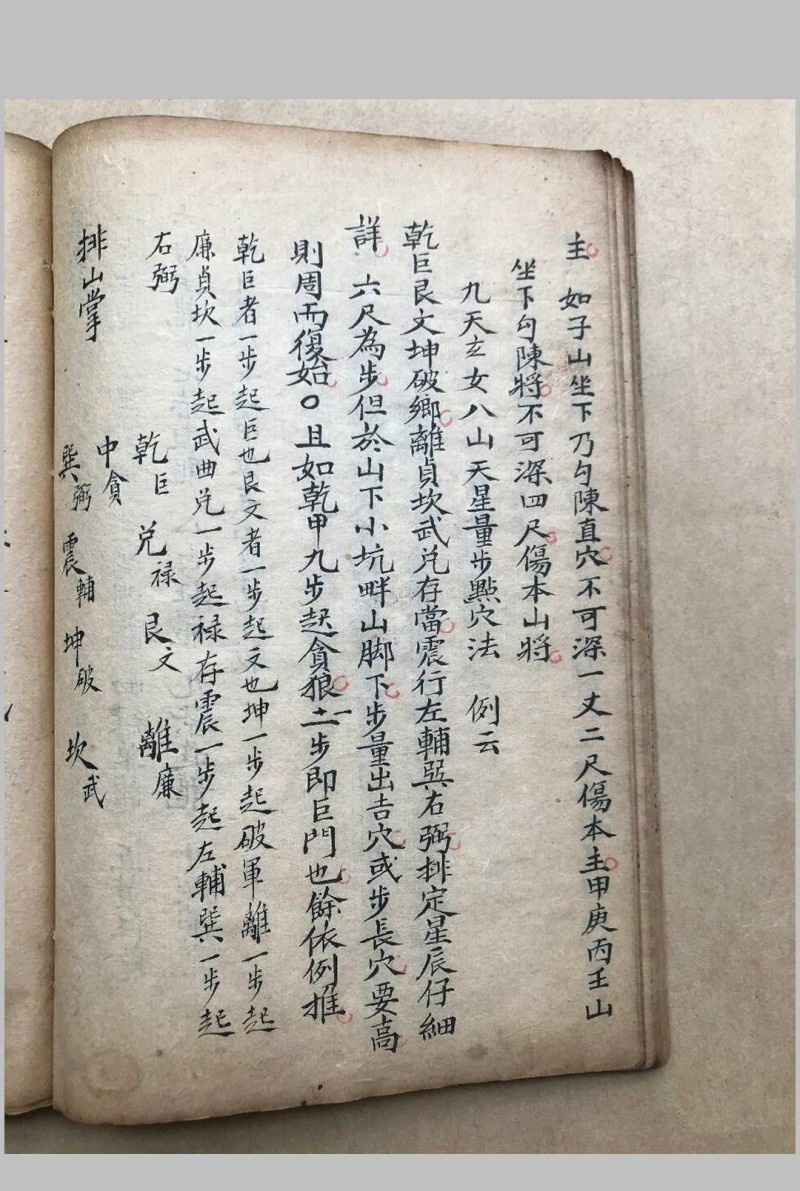 主 如子山坐下乃勾陳直穴不可深一丈二尺傷本主甲庚丙壬山
坐下勾陳將不可深四尺傷本山將
九天玄女八山天星量步點穴法 例云
乾巨艮文坤破鄉離貞坎武兌存當震行左輔巽右弼排定星辰仔細
詳 六尺為步但於山下小坑畔山脚下步量出吉穴或步長穴要高
則周而復始〇且如乾甲九步起貪狼十一步即巨門也餘依例推
乾巨者一步起巨也艮文者一步起文也坤一步起破軍離一步起
廉貞坎一步起武曲兌一步起祿存震一步起左輔巽一步起
右弼
乾巨 兌祿 艮文 離廉
中貪
排山掌 巽弼 震輔 坤破 坎武